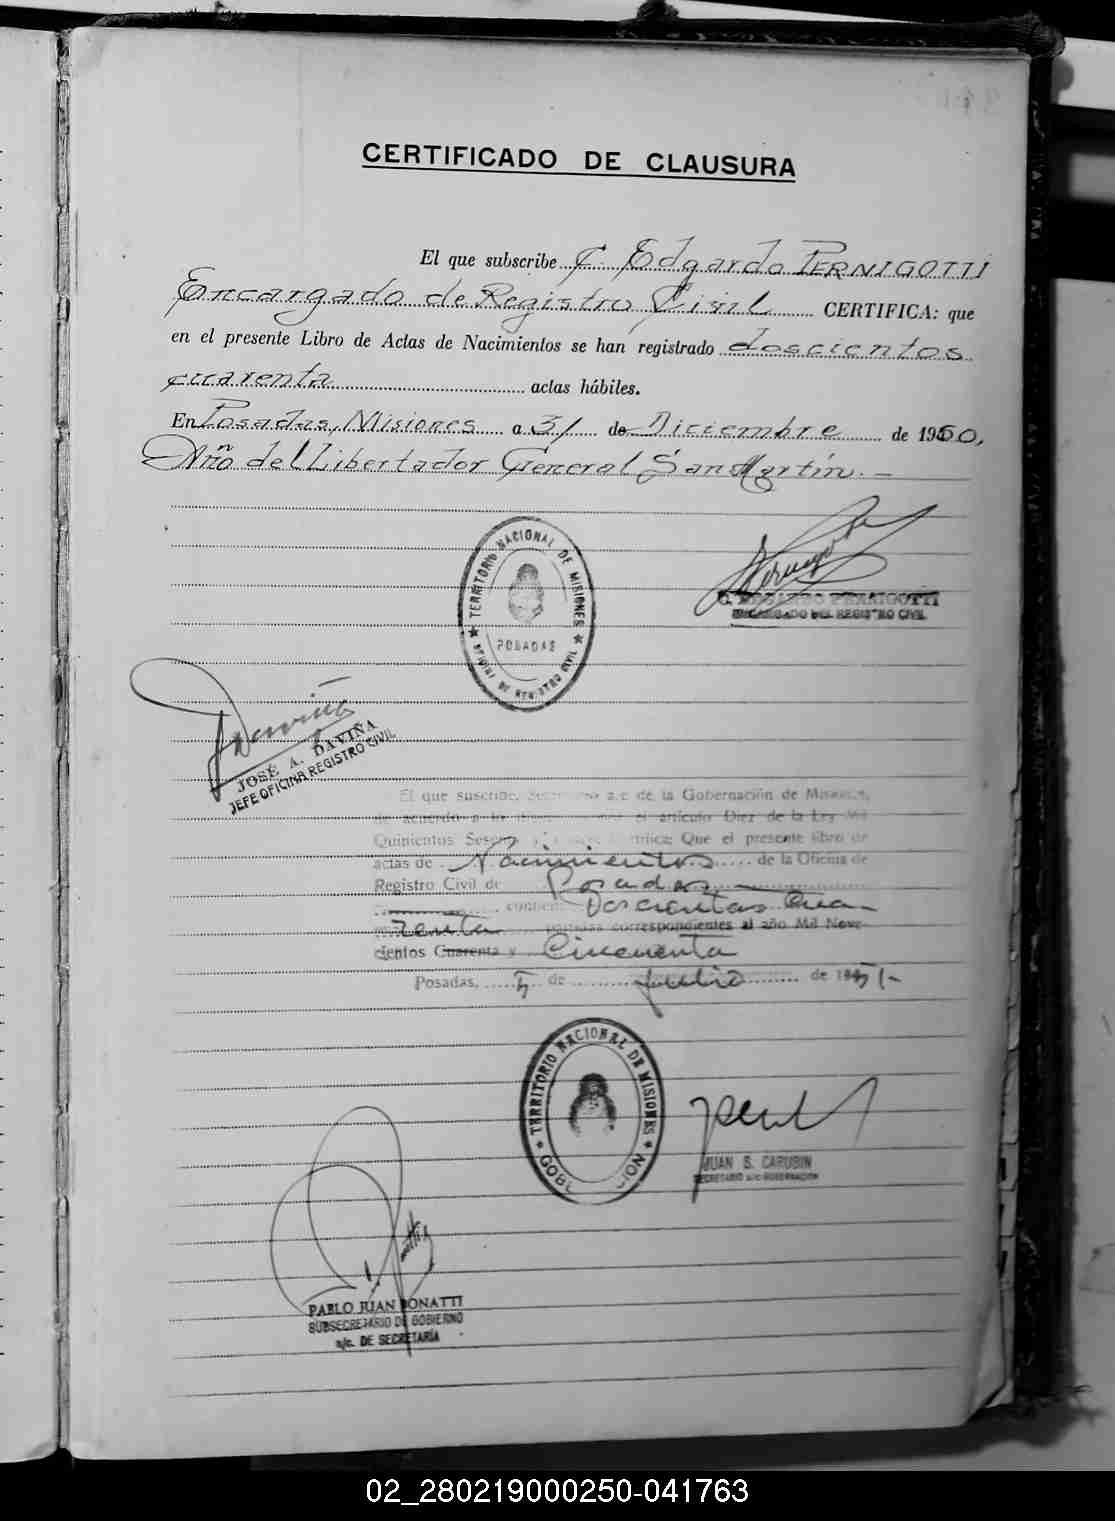 CERTIFICADO DE CLAUSURA
El que subscribe C. Edgardo PERNIGOTTI
Encargado de Registro Civil CERTIFICA: que
en el presente Libro de Actas de Nacimientos se han registrado doscientos
cuarenta actas hábiles.
En Posadas, Misiones a 31 de Diciembre de 1950,
Año del Libertador General San Martín.—
TERRITORIO NACIONAL DE MISIONES
POSADAS
OFICINA DE REGISTRO CIVIL
C. EDGARDO PERNIGOTTI
ENCARGADO DEL REGISTRO CIVIL
Daviña
JOSÉ A. DAVIÑA
JEFE OFICINA REGISTRO CIVIL
El que suscribe, Secretario a/c de la Gobernación de Misiones,
de acuerdo a lo el artículo Diez de la Ley Mil
Quinientos Que el presente libro de
actas de Nacimientos de la Oficina de
Registro Civil de Posadas
Doscientas Cua-
renta partidas correspondientes al año Mil Nove-
cientos Cuarenta y Cincuenta
Posadas, de Julio de 1951-
TERRITORIO NACIONAL DE MISIONES
JUAN S. CARUBIN
SECRETARIO a/c GOBERNACION
PABLO JUAN BONATTI
SUBSECRETARIO DE GOBIERNO
a/c. DE SECRETARÍA
02_280219000250-041763